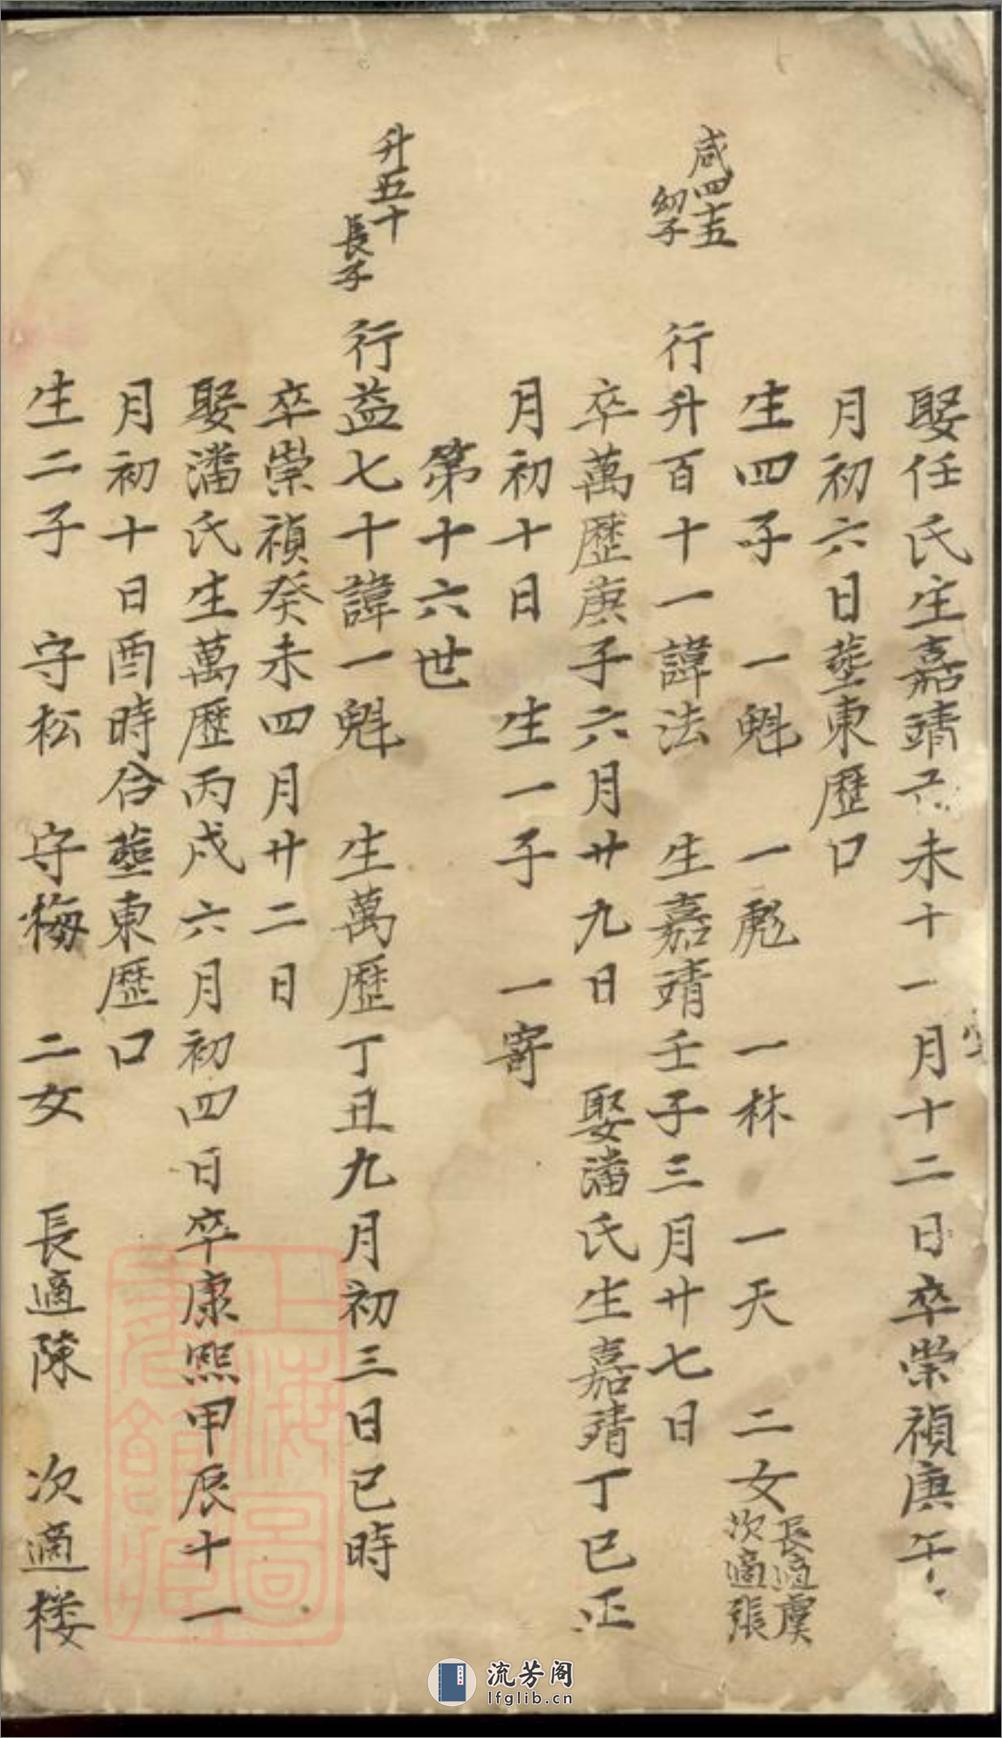 娶任氏生嘉靖未十一月十二日卒崇禎庚午
月初六日塟東歷口
生四子 一魁 一彪 一林 一天 二女 長適虞 次適張
咸四十五
幼子
行升百十一諱法 生嘉靖壬子三月廿七日
卒萬歷庚子六月廿九日 娶潘氏生嘉靖丁巳正
月初十日 生一子 一寄
第十六世
升五十
長子
行益七十諱一魁 生萬歷丁丑九月初三日巳時
卒崇禎癸未四月廿二日
娶潘氏生萬歷丙戌六月初四日卒康熙甲辰十一
月初十日酉時合塟東歷口
生二子 守松 守梅 二女 長適陳 次適楼
上海圖書館藏
流芳阁
lfglib.cn